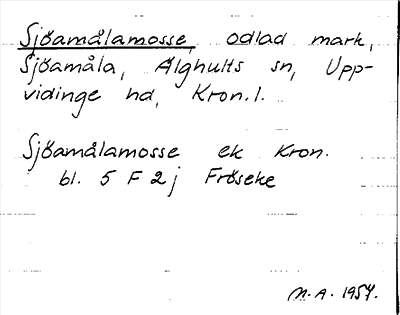 Sjöamålamosse, odlad mark,
Sjöamåla, Älghults sn, Upp-
vidinge hd, Kron. l.
Sjöamålamosse ek Kron.
bl. 5 F 2 j Fröseke
M. A. 1957.